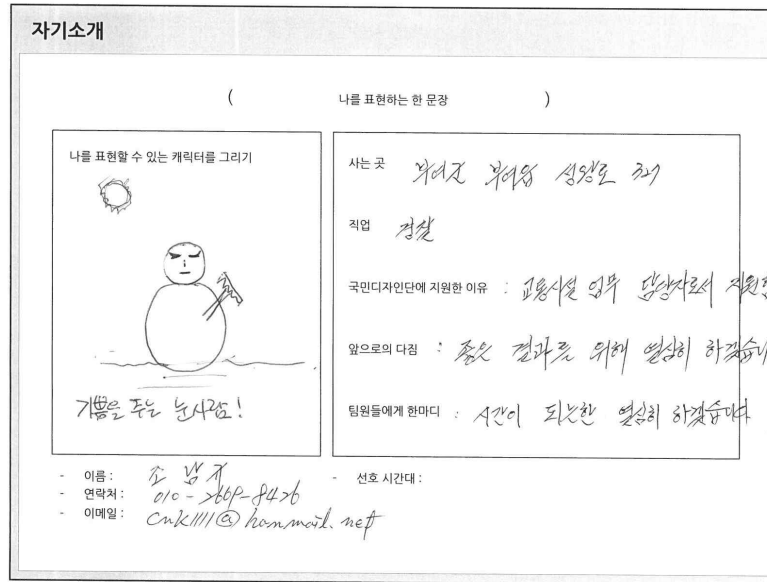 자기소개
( 나를 표현하는 한 문장 )
나를 표현할 수 있는 캐릭터를 그리기
기쁨을 주는 눈사람!
사는 곳 부여군 부여읍 성왕로 327
직업 경찰
국민디자인단에 지원한 이유 : 교통시설 업무 담당자로서 지원함
앞으로의 다짐 : 좋은 결과를 위해 열심히 하겠습니다
팀원들에게 한마디 : 시간이 되는한 열심히 하겠습니다.
- 이름 : 조남
- 연락처 : 010-2669-8426
- 이메일 : cnk1111@hanmail.net
- 선호 시간대 :